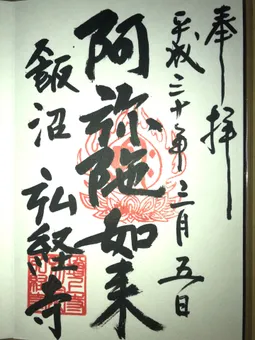 奉拝
平成二十年三月五日
阿弥陀如来
飯沼 弘経寺